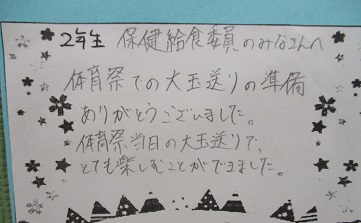 2年生 保健給食委員のみなさんへ
体育祭での大玉送りの準備
ありがとうございました。
体育祭当日の大玉送りで、
とても楽しむことができました。